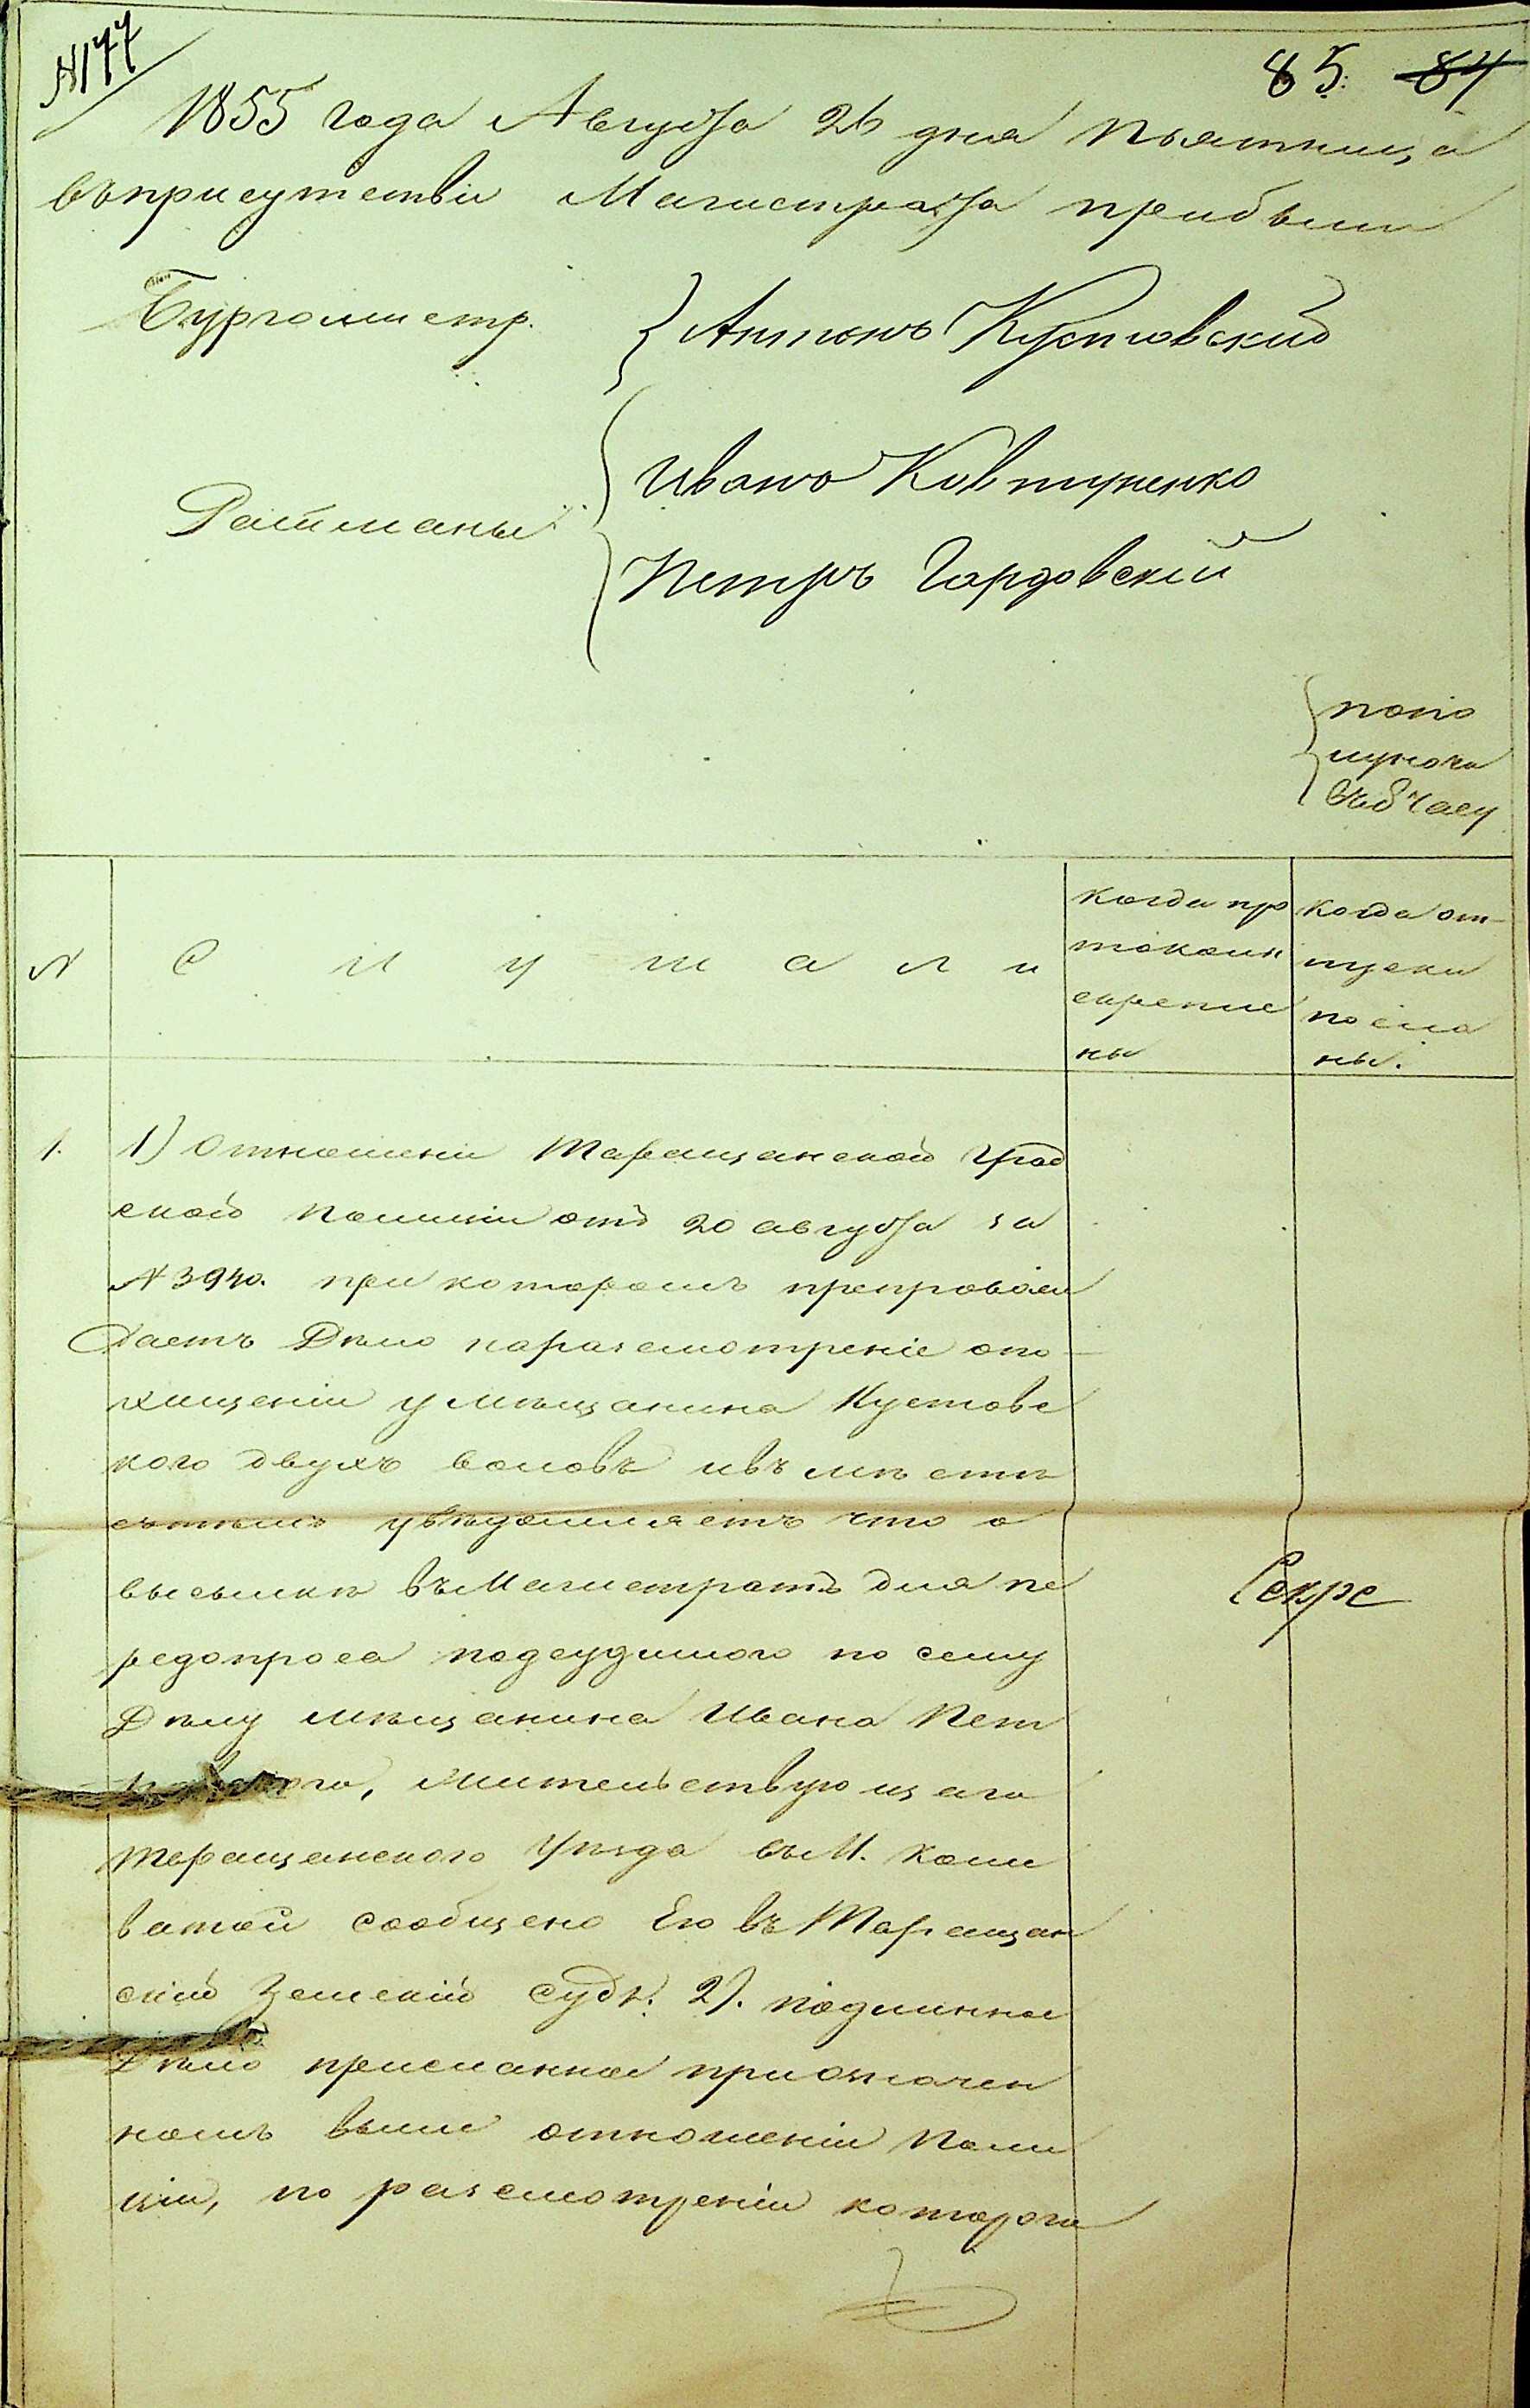 №177
85. 84
1855 года Августа 26 дня пьятница
въприсутствіи Магистрата прибыли
Бургомистр. Антонъ
Ратманы Иванъ Ковтуненко
Петръ Гордовскій
попо
луночи
въ 8 часу
№ С л у ш а л и
когда про
токолы
скрепле
ны
когда от-
пуски
посла
ны.
1. 1) Отношеніи Таращанской Град
ской полиціи отъ 20 августа за
№ 3940. при которомъ препровож
даетъ Дѣло наразсмотреніе опо-
хищеніи у мѣщанина Кустовс
кого двухъ воловъ ивъ мѣстѣ
сътемъ увѣдомляетъ что о
высылкѣ въ Магистратъ для пе
редопроса подсудимого по сему
Дѣлу мѣщанина Ивана Пет
жительствующаго
Таращанского Уѣзда въ М. Кош
ватой сообщено Ею въ Таращан
скій Земскій судъ. 2). подлинное
Дѣло присланное приозначен
номъ выше отношеніи Поли
ціи, по разсмотреніи которого
Секре